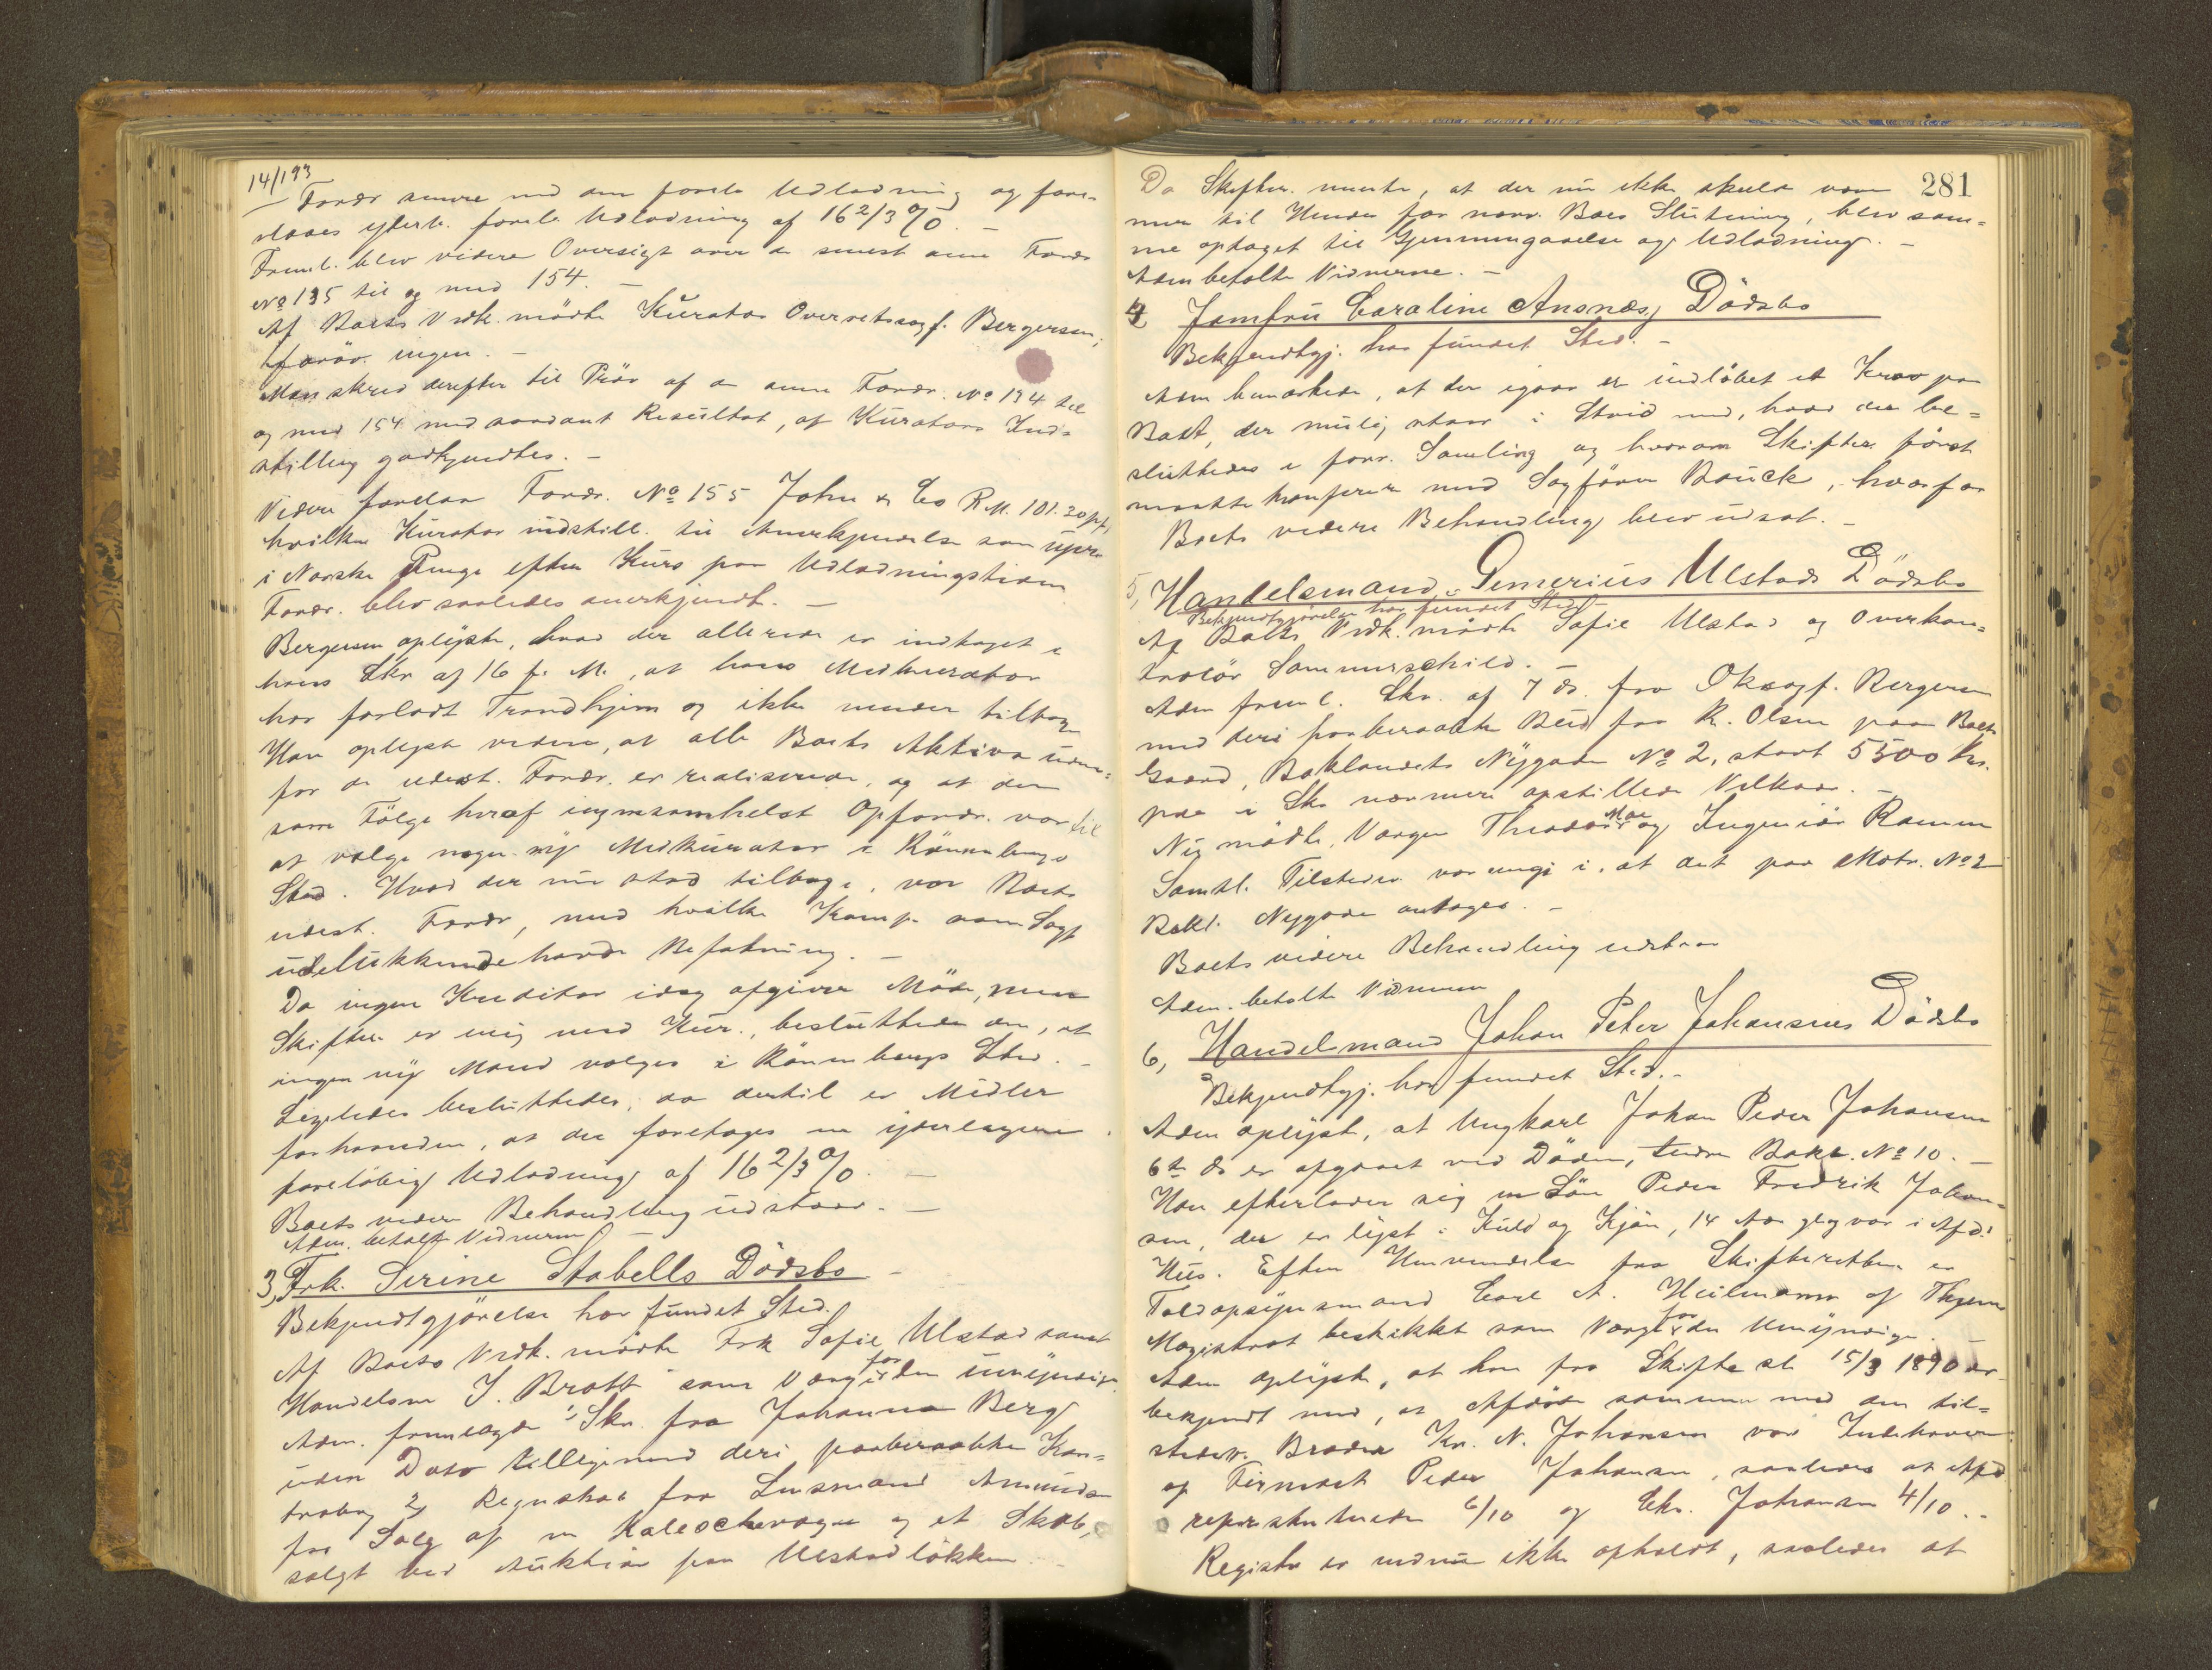 14/193
Fordr senere end den forele Udlodning og fore-
slaaes yderl. forel. Udlodning af 16 2/3 %. –
Freml. blev videre Oversigt over de senest anm Fordr
No 135 til og med 154. –
Af Boets Vedk. mödte Kurator Overretssagf. Bergersen,
forövr. ingen. –
Man skred derefter til Pröv af de anm Fordr. No 134 til
og med 154 med saadant Resultat, at Kurators Ind-
stilling godkjendtes. –
Videre forelaa Fordr. No 155 John & Co R.M. 101.20 pf,
hvilken Kurator indstill. til Anerkjendelse som upr
i Norske Penge efter Kurs paa Udlodningstiden
Fordr. blev saaledes anerkjendt. –
Bergersen oplyste, hvad der allerede er indtaget i
hans Skr af 16 f. M., at hans Medkurator
har forladt Trondhjem og ikke vender tilbage
Han oplyste videre, at alle Boets Aktiva uden-
for de udest. Fordr. er realiserede, og at der
som Fölge heraf ingensomhelst Opfordr. var til
at vælge nogen ny Medkurator i Rönnebergs
Sted. Hvad der nu stod tilbage, var Boets
udest. Fordr, med hvilke Komp. som Sagf
udelukkende havde Befatning. –
Da ingen Kreditor idag afgiver Möde, men
Skifter. er enig med Kur., besluttedes den, at
ingen ny Mand vælges i Rönnebergs Sted. –
Ligeledes besluttedes, da dertil er Midler
forhaanden, at der foretages en yderligere
forelöbig Udlodning af 16 2/3 %. –
Boets videre Behandling udstaar. –
Adm. betalte Vidnerne –
3, Frk. Serine Stabells Dödsbo –
Bekjendtgjörelse har fundet Sted.
Af Boets Vedk. mödte Frk Sofie Ulstad samt
Handelsm J. Bratt som Værge for den umyndige
Adm. fremlagde 1) Skr. fra Johanna Berg
uden Dato tilligemed deri paaberaabte Kon-
trabog 2) Regnskab fra Lensmand Amundsen
fra Salg af en Kaleschevogn og et Skab,
solgt ved Auktion paa Ulstadlökken –
281
Da Skifter. mente, at der nu ikke skulde være
mer til Hinder for nærv. Boes Slutning, blev sam-
me optaget til Gjennemgaaelse og Udlodning. –
Adm betalte Vidnerne. –
4, Jomfru Caroline Ansnæs, Dödsbo
Bekjendtgj. har fundet Sted. –
Adm bemærkede, at der igaar er indlöbet et Krav paa
Boet, der mulig staar i Strid med, hvad der be-
sluttedes i forr. Samling og hvorom Skifter. förvt
maatte konferere med Sagförer Bauck, hvorfor
Boets videre Behandling blev udsat. –
5, Handelsmand Semerius Ulstads Dödsbo
Bekjendtgjörelse har fundet Sted –
Af Boets Vedk. mödte Sofie Ulstad og Overkon-
trolör Sommerschild. –
Adm freml. Skr. af 7 ds. fra O.R.sagf. Bergersen
med deri paaberaabte Bud fra R. Olsen paa Boets
Gaard, Baklandets Nygade No 2, stort 5500 Kr.
paa i Skr nærmere opstillede Vilkaar. –
Nu mödte Værgen Theodor Moe og Ingeniör Ramm
Samtl. Tilstedev. var enige i, at det paa Matr. No 2
Bakl. Nygade antages. –
Boets videre Behandling udstaar
Adm. betalte Vidnerne
6, Handelsmand Johan Peter Johansens Dödsbo
Bekjendtgj. har fundet Sted. –
Adm oplyste, at Ungkarl Johan Peder Johansen
6te ds er afgaaet ved Döden, Indre Bakl. No 10. –
Han efterlader sig en Sön Peder Fredrik Johan-
sen, der er lyst i Kuld og Kjön, 14 Aar gl og var i Afd!
Hus. Efter Henvendelse fra Skifteretten er
Toldopsynsmand Carl A. Heilmann af Thjems
Magistrat beskikket som Værge for den Umyndige. –
Adm oplyste, at han fra Skifte sl. 15/3 1890 er
bekjendt med, at Afdöde sammen med den til-
stedev. Broder Kr. N. Johansen var Indehaver
af Firmaet Peder Johansen, saaledes at Afd
repræsenterede 6/10 og Chr. Johansen 4/10 . .
Registr er endnu ikke opholdt, saaledes at